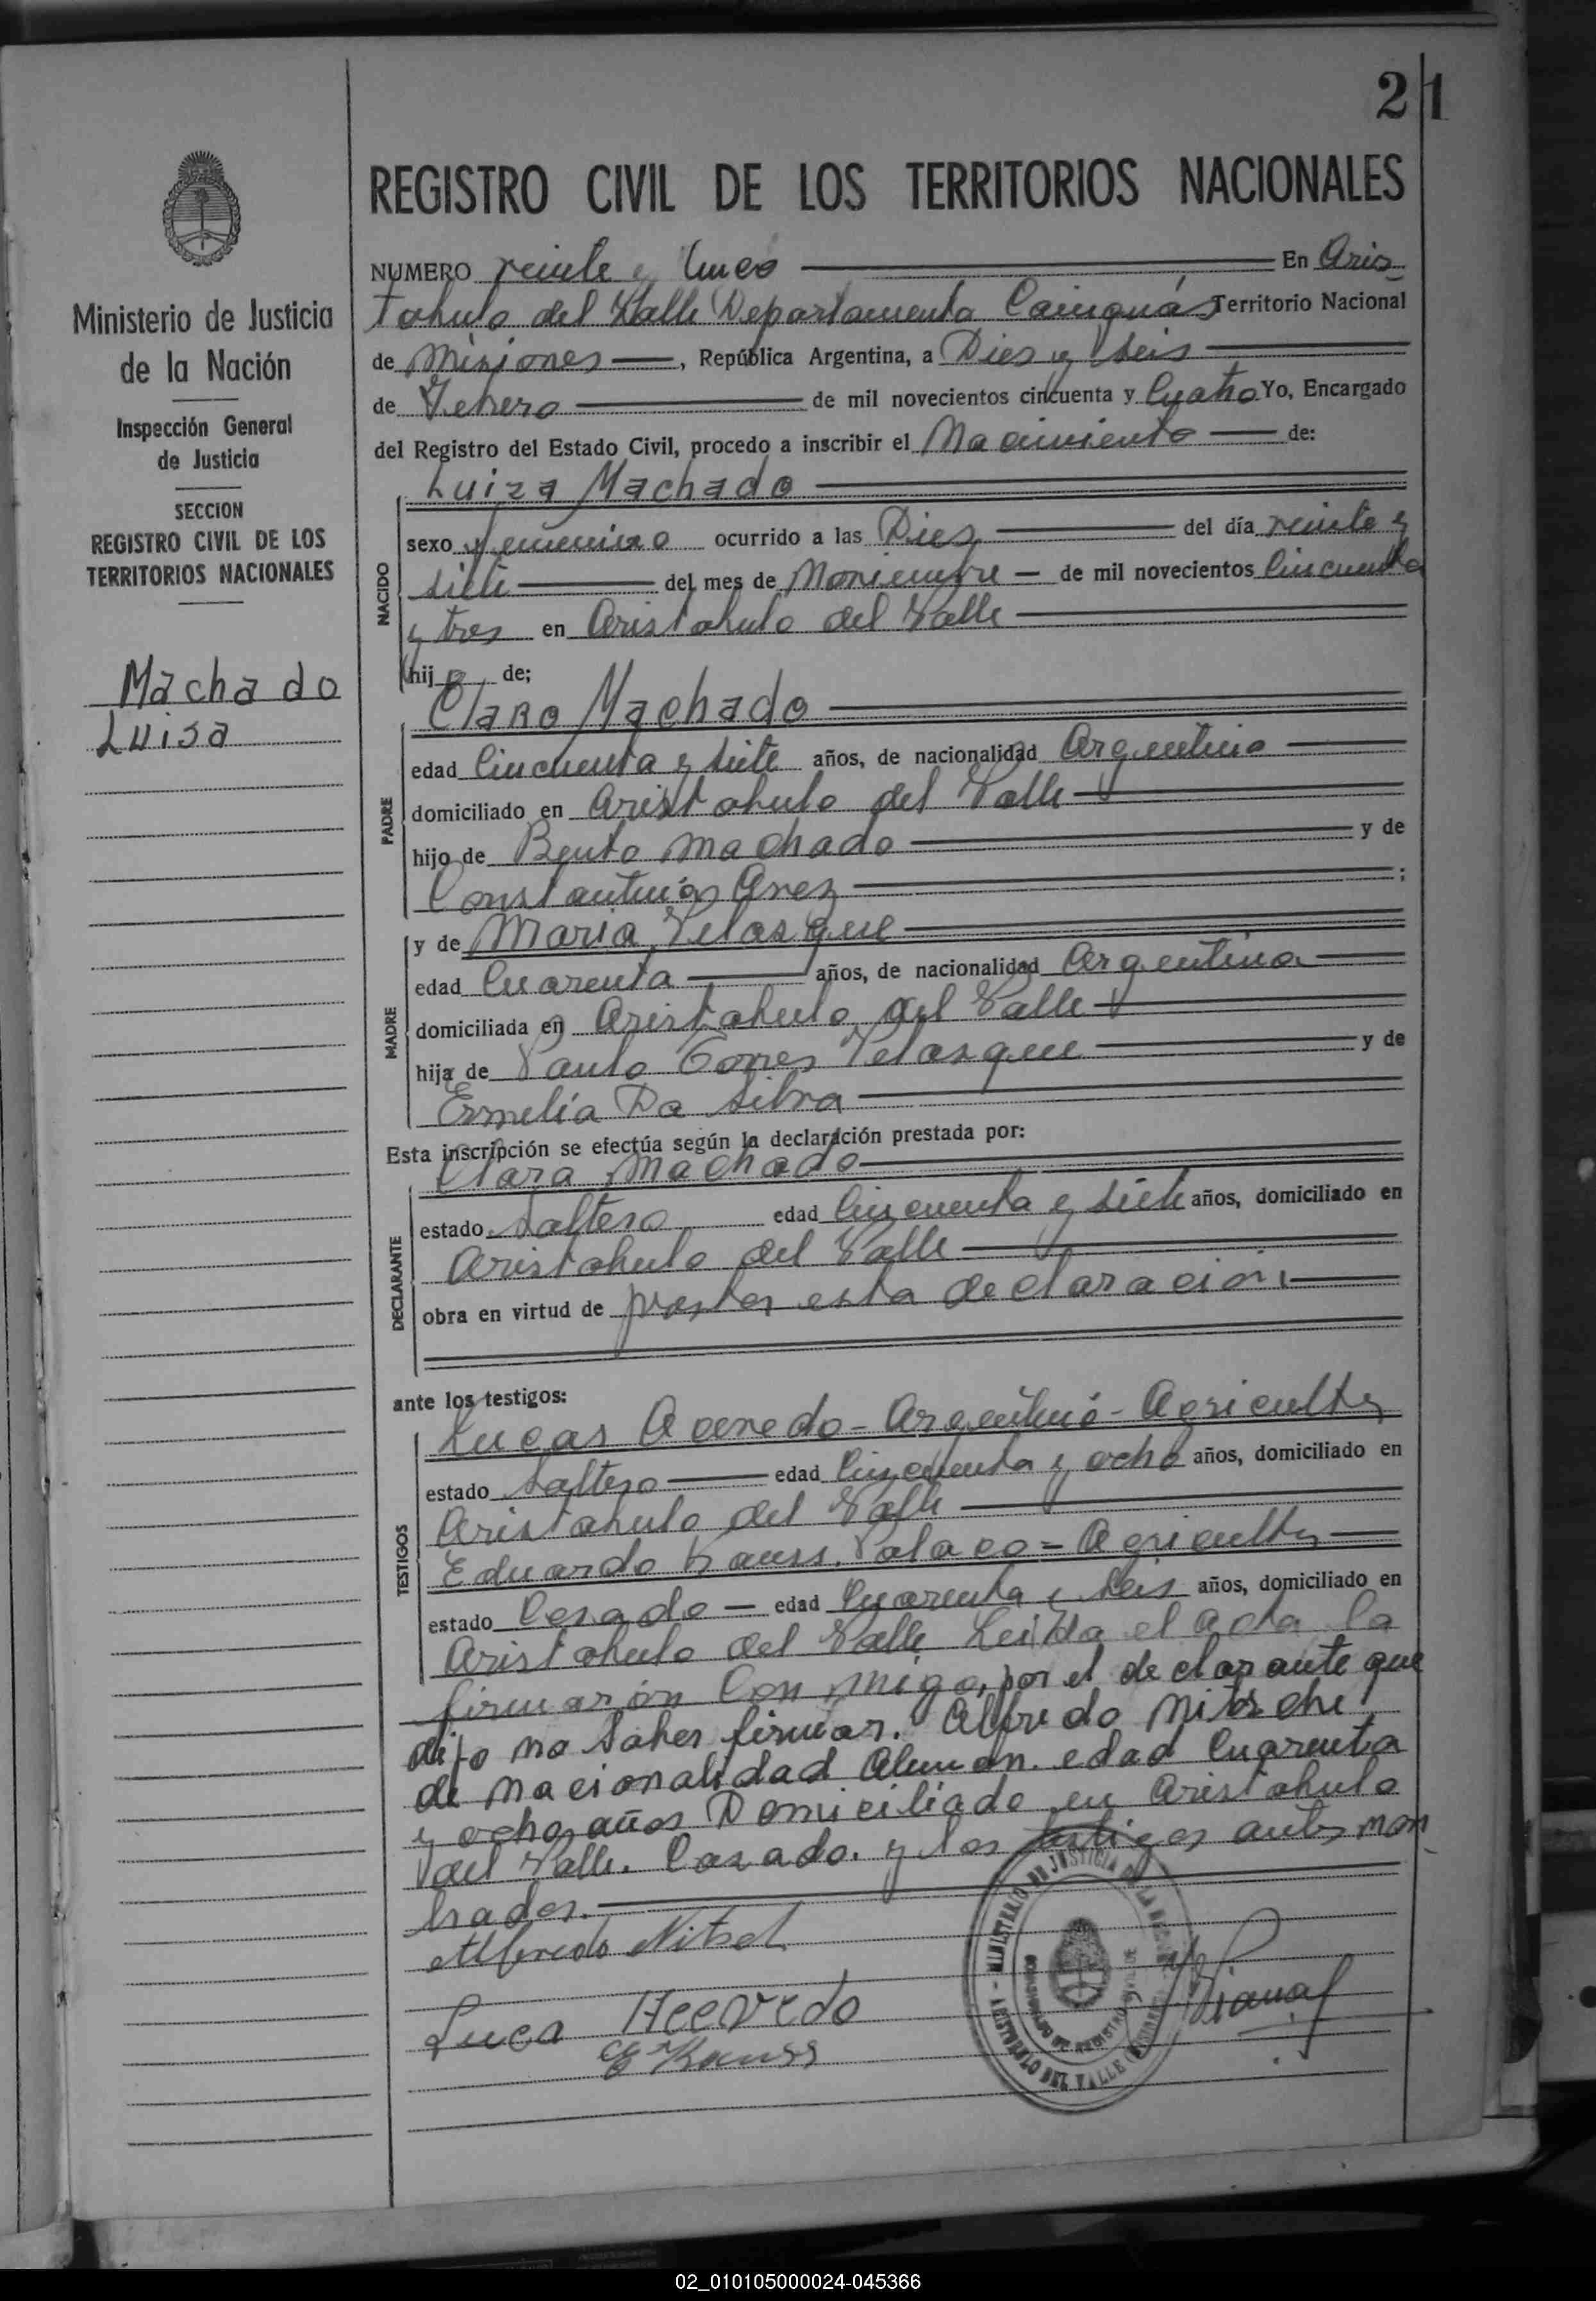 21
REGISTRO CIVIL DE LOS TERRITORIOS NACIONALES
Ministerio de Justicia
de la Nación
Inspección General
de Justicia
SECCION
REGISTRO CIVIL DE LOS
TERRITORIOS NACIONALES
Machado
Luisa
NUMERO veinte y En Aris
tobulo del Valle Departamento Cainguás Territorio Nacional
de Misiones, República Argentina, a Dies y seis
de Febrero de mil novecientos cincuenta y Cuatro Yo, Encargado
del Registro del Estado Civil, procedo a inscribir el Nacimiento de:
NACIDO
Luiza Machado
sexo femenino ocurrido a las Dies del día veinte y
siete del mes de Noviembre de mil novecientos Cincuenta
y tres en Aristobulo del Valle
hija de;
PADRE
Claro Machado
edad Cincuenta y siete años, de nacionalidad Argentino
domiciliado en Aristobulo del Valle
hijo de Bento Machado y de
;
MADRE
y de Maria Velasque
edad Cuarenta años, de nacionalidad Argentina
domiciliada en Aristobulo del Valle
hija de Paulo Torres Velasque y de
Ermelia Da Silva
Esta inscripción se efectúa según la declaración prestada por:
DECLARANTE
Claro Machado
estado Soltero edad Cincuenta y siete años, domiciliado en
Aristobulo del Valle
obra en virtud de prestar esta declaración
ante los testigos:
TESTIGOS
Lucas Acevedo - Argentino - Agricultor
estado Soltero edad Cincuenta y ocho años, domiciliado en
Aristobulo del Valle
Eduardo Kauss. Polaco = Agricultor
estado Casado edad Cuarenta y seis años, domiciliado en
Aristobulo del Valle Leida el acta la
firmarón Con migo, por el declarante que
dijo no saber firmar. Alfredo Nitsche
de nacionalidad Aleman. edad Cuarenta
y ocho años Domiciliado en Aristobulo
del Valle. Casado. y los testigos antes nom
brados.
Alfredo Nitsch
Luca Acevedo
E Kauss
MINISTERIO DE JUSTICIA DE LA
ARISTOBULO DEL VALLE
02_010105000024-045366